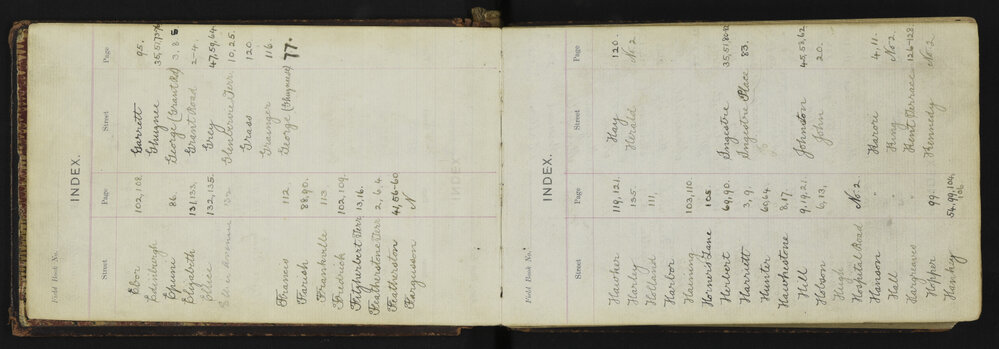 Field Book No.
INDEX.
Street Page Street Page
Ebor 102,108. Garrett 95.
Edinburgh Ghuznee
Epuni 86. George (Grant Rd) 3, 8
Elizabeth 131,133, Grant Road 2-4.
Ellice 132,135. Grey 47,59,64
Avenue 132 Glenbervie Terr. 10,25.
Grass 120
Grainger 116.
Francis 112 George (Ghuznee) 77.
Farish 88,90.
Frankville 113
Fredrick 102,109.
Fitzherbert Terr 13,16.
Featherstone Terr 2,6,4.
Featherston 41,56-60
Fergusson N
Field Book No.
INDEX.
Street Page Street Page
Hawker 119,121. Hay 120.
Harley 135. Herald No 2.
Holland 111,
Harbor
Haining 103,110.
Horner's Lane 105.
Herbert 69,90. Ingestre
Harriett 3, 9. Ingestre Place 83.
Hunter 60,64.
Hawkestone 8,17.
Hill 9,19,21. Johnston 45,53,62
Hobson 6,13, John 20.
Hugh
Hospital Road No 2.
Hanson " Karori 4, 11.
Hall " King No 2
Hargreaves Kent Terrace 126-128.
Hopper 99. Kennedy No 2.
Hankey 54,99,104,
106.